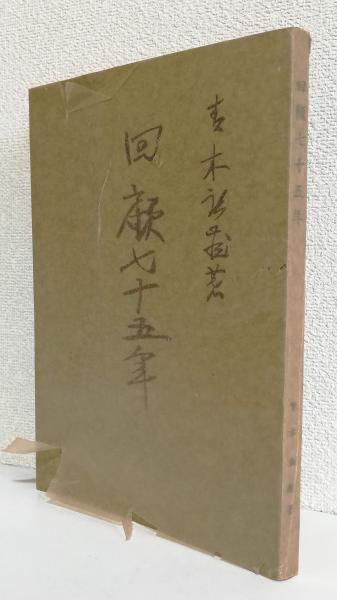 青木 著
回顧七十五年
回顧七十五年